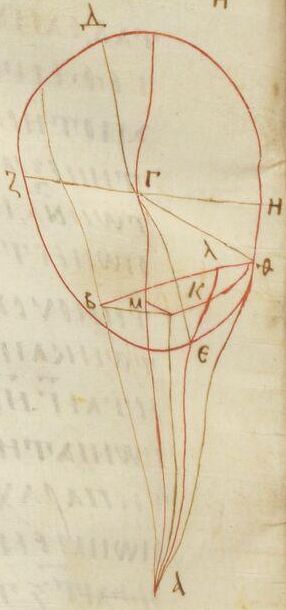 Η
Δ
Ζ
Γ
Η
λ
Θ
Β
Μ
Κ
Ε
Α